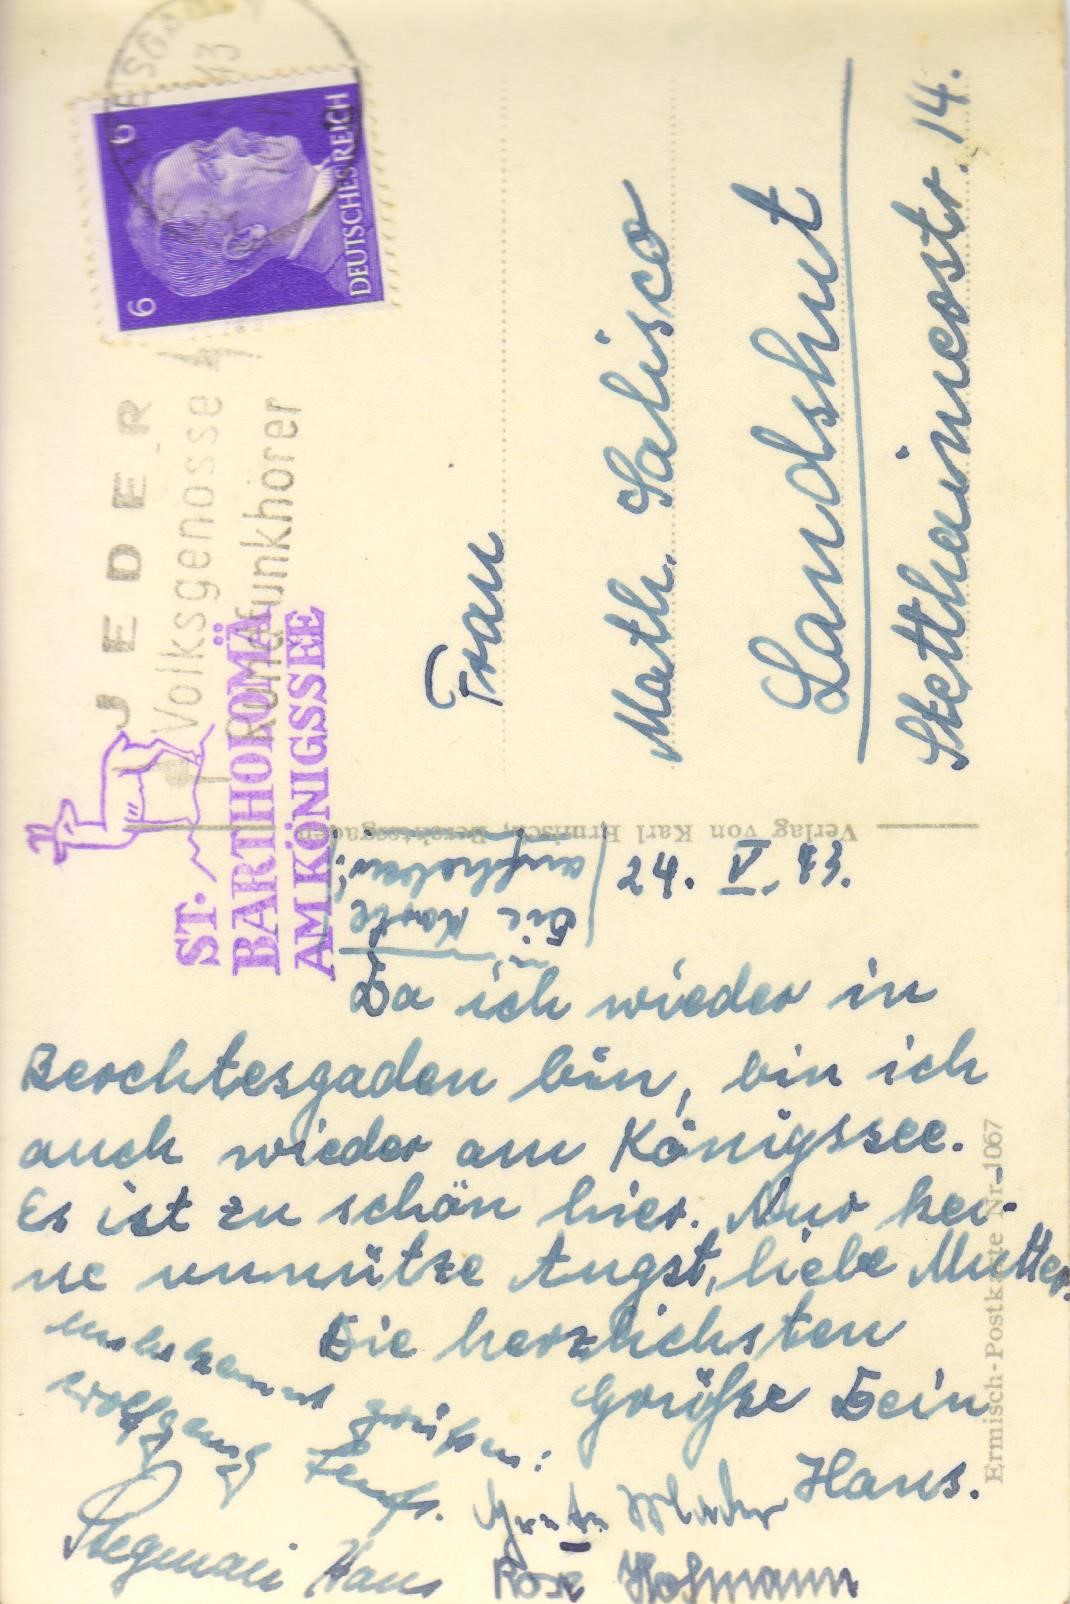 6
6
DEUTSCHES REICH
JEDER
Volksgenosse
Rundfunkhörer
ST.
BARTHOLOMÄ
AM KÖNIGSSEE
Frau
Math. Salisco
Landshut
Stetthaimerstr. 14.
Verlag von Karl Ermisch, Berchtesgaden
die Karte
aufheben!
24. V. 43.
Da ich wieder in
Berchtesgaden bin, bin ich
auch wieder am Königssee.
Es ist zu schön hier. Nur kei-
ne unnütze Angst, liebe Mutter.
Die herzlichsten
Grüße Dein
Hans.
Unbekannt grüßen:
Wolfgang
Hans
Rose Hofmann
Ermisch-Postkarte Nr. 1067